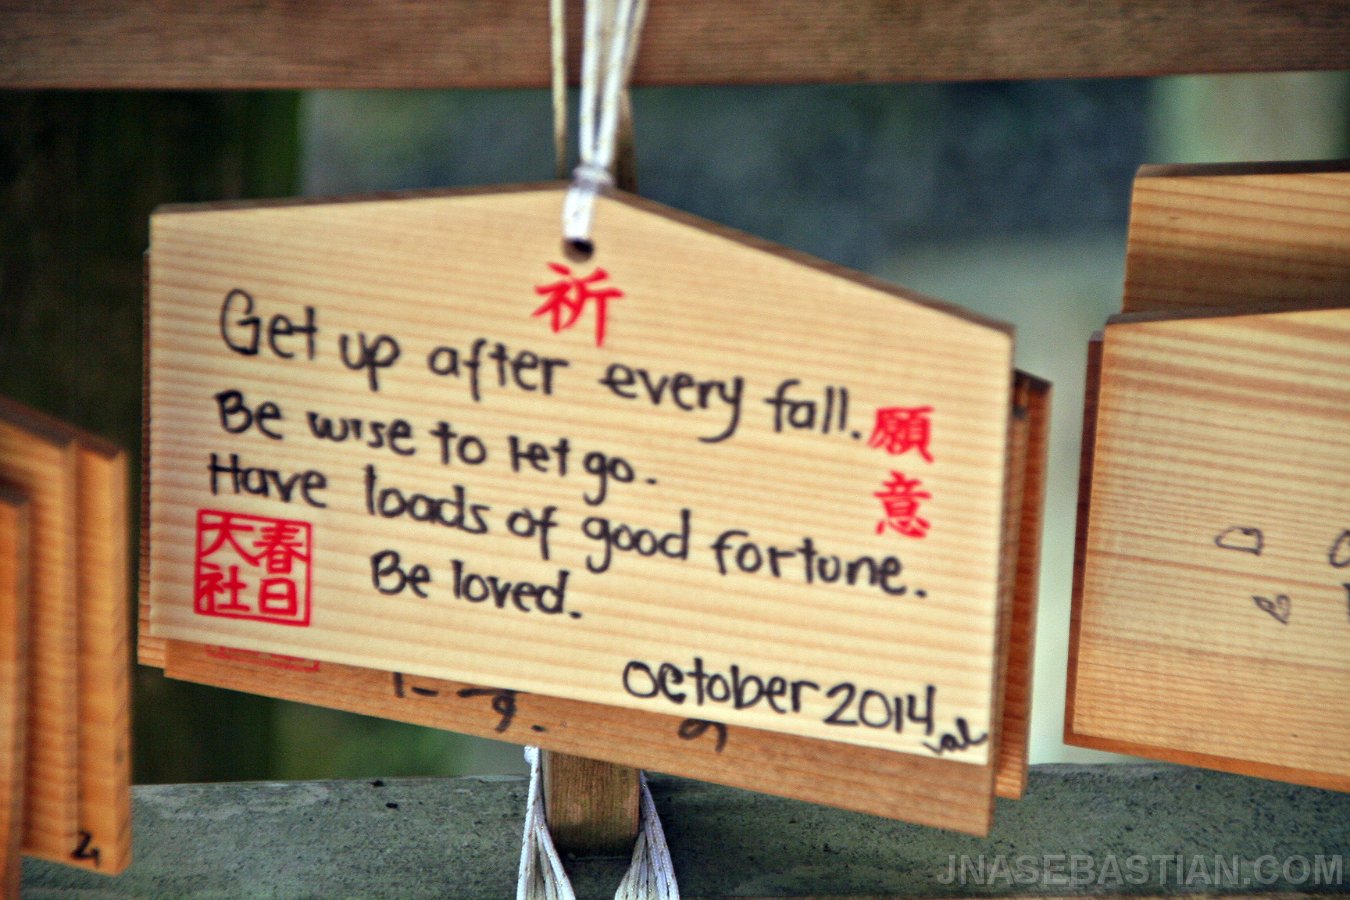 祈
Get up after every fall.
願意
Be wise to let go.
Have loads of good fortune.
春日
大社
Be loved.
October 2014
JNASEBASTIAN.COM